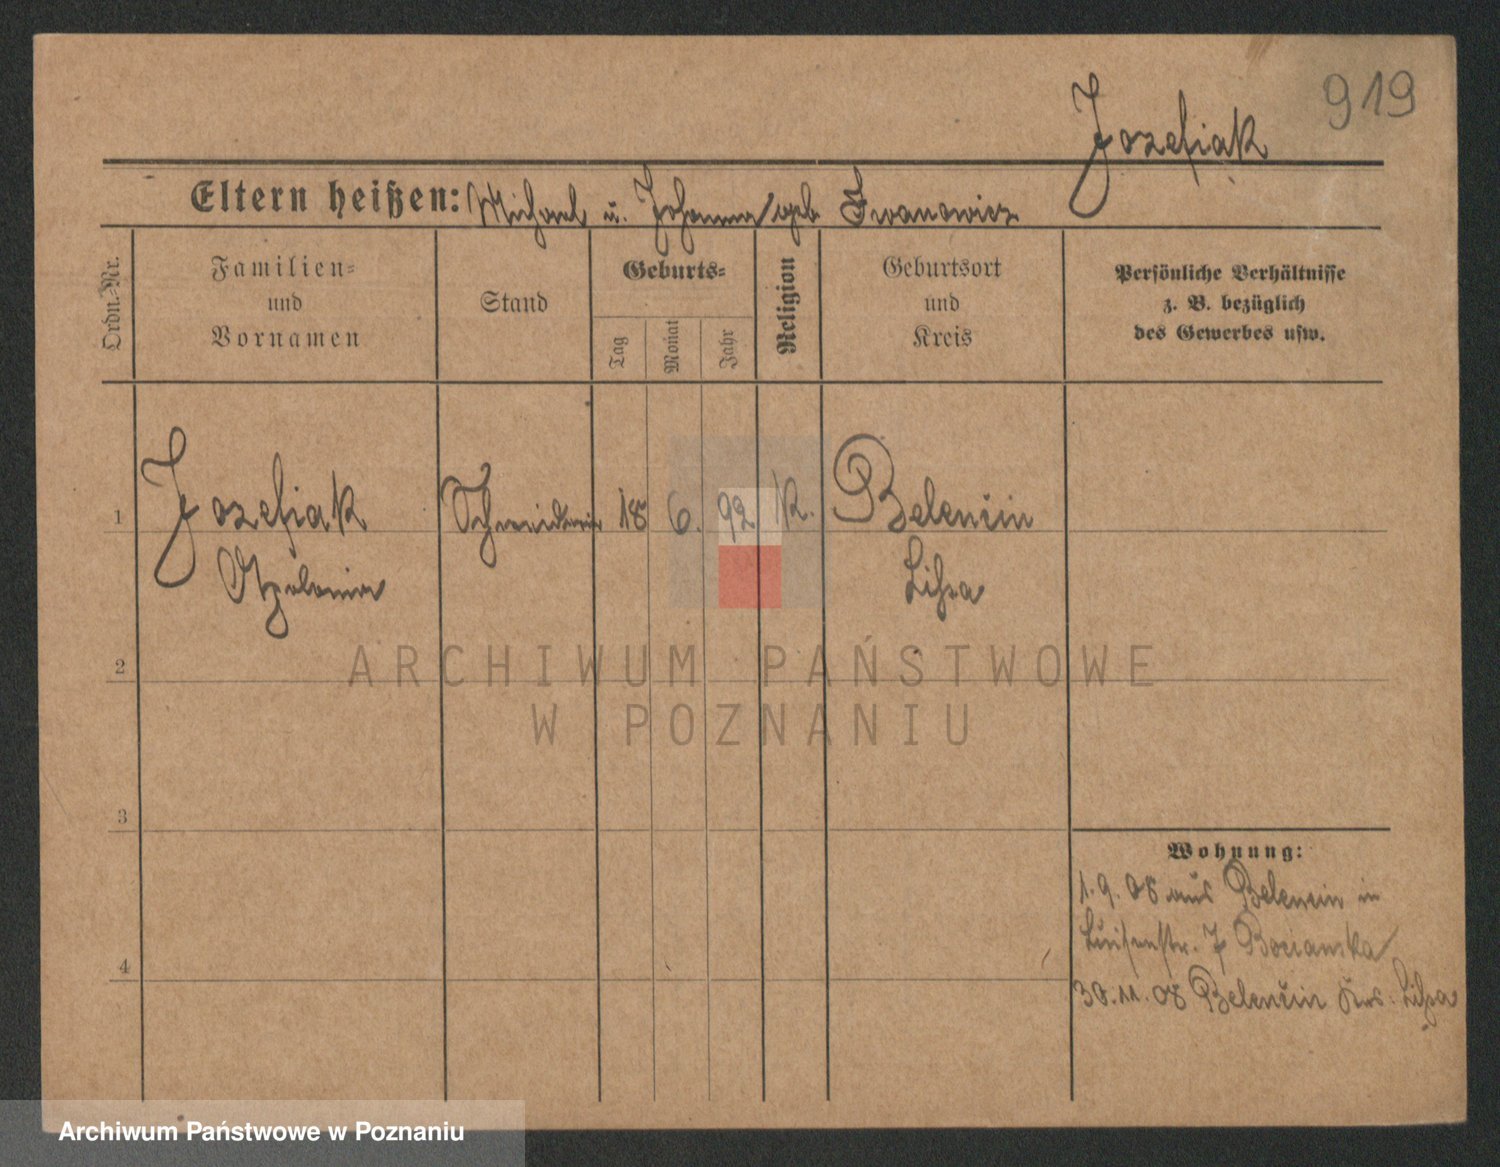 919
Jozefiak
Eltern heißen: Michael u. Johanna geb Iwanowicz
Ordn.-Nr.
Familien-
und
Vornamen
Stand
Geburts-
Tag
Monat
Jahr
Religion
Geburtsort
und
Kreis
Persönliche Verhältnisse
z. B. bezüglich
des Gewerbes usw.
1
Jozefiak
Apolonia
Schneiderin
18
6.
92
K.
Belencin
Lissa
2
3
4
Wohnung:
1.9.08 aus Belencin in
Luisenstr. 7 Bocianska
30.11.08 Belencin Krs. Lissa
ARCHIWUM PAŃSTWOWE
W POZNANIU
Archiwum Państwowe w Poznaniu